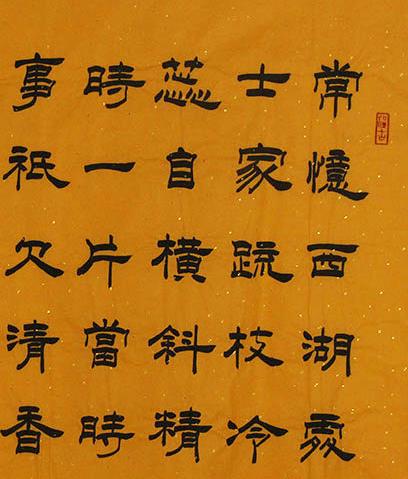 常憶西湖處
士家疏枝冷
蕊自橫斜精
時一片當時
事祇欠清香